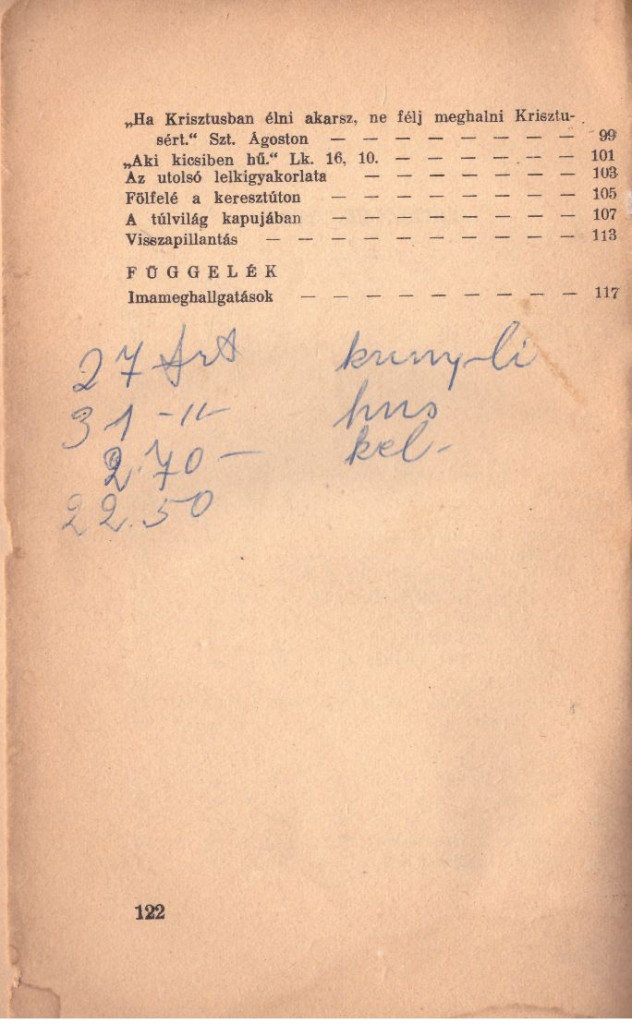 „Ha Krisztusban élni akarsz, ne félj meghalni Krisztu-
sért.“ Szt. Ágoston — — — — — — — — 99
„Aki kicsiben hű.“ Lk. 16, 10. — — — — — — — 101
Az utolsó lelkigyakorlata — — — — — — — 103
Fölfelé a keresztúton — — — — — — — — 105
A túlvilág kapujában — — — — — — — — 107
Visszapillantás — — — — — — — — — — 113
FÜGGELÉK
Imameghallgatások — — — — — — — — — 117
27
31 -11- hus
2.70 - kel-
22.50
122